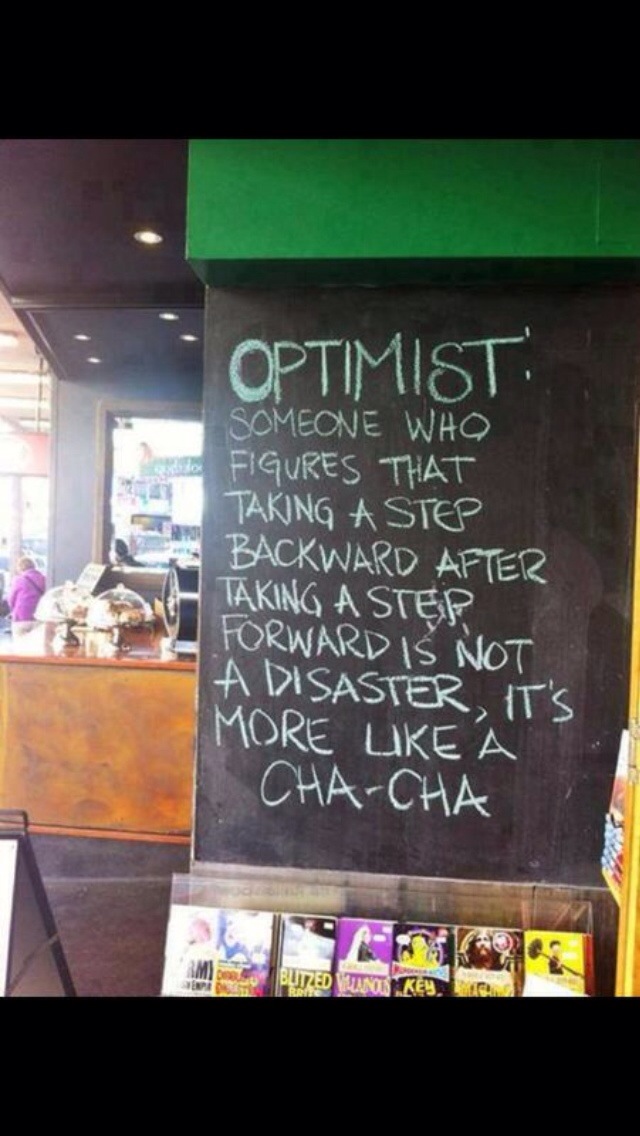 OPTIMIST:
SOMEONE WHO
FIGURES THAT
TAKING A STEP
BACKWARD AFTER
TAKING A STEP
FORWARD IS NOT
A DISASTER, IT'S
MORE LIKE A
CHA-CHA
BLITZED
BRITS
VILLAINOUS
KEY